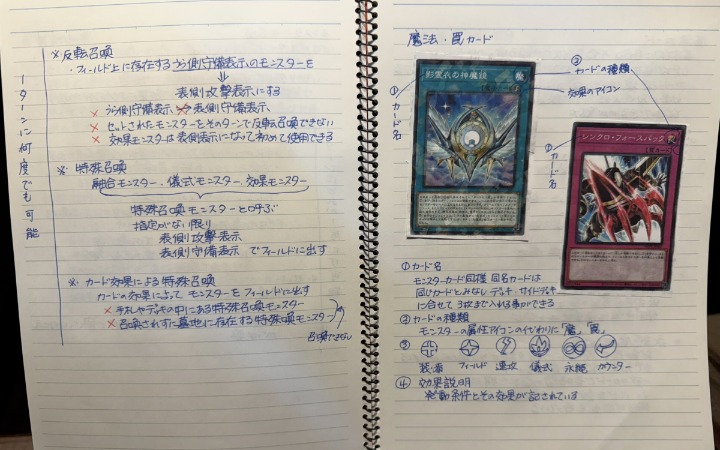 1ターンに何度でも可能
※反転召喚
・フィールド上に存在するうら側守備表示のモンスターを
表側攻撃表示にする
× うら側守備表示 表側守備表示
× セットされたモンスターをそのターンで反転召喚できない
× 効果モンスターは表側表示になって初めて使用できる
※ 特殊召喚
融合モンスター、儀式モンスター、効果モンスター
特殊召喚モンスターと呼ぶ
指定がない限り
表側攻撃表示
表側守備表示 でフィールドに出す
※ カード効果による特殊召喚
カードの効果によって モンスターをフィールドに出す
× 手札やデッキの中にある特殊召喚モンスター
× 召喚されずに墓地に存在する特殊召喚モンスター
召喚できない
魔法・罠カード
② カードの種類
効果のアイコン
① カード名
影霊衣の神魔鏡
① カード名
シンクロ・フォースバック
① カード名
モンスターカード同様 同名カードは
同じカードとみなし デッキ、サイドデッキ
に合せて 3枚まで入れる事ができる
② カードの種類
モンスターの属性アイコンの代わりに「魔」「罠」
③
装備 フィールド 速攻 儀式 永続 カウンター
④ 効果説明
発動条件とその効果が記されている